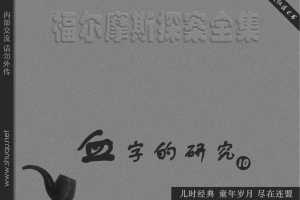 福尔摩斯探案全集
血字的研究
10
内部交流 请勿外传
www.shuqu.net
儿时经典 童年岁月 尽在连盟